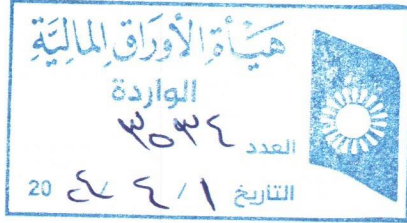 هيأة الأوراق المالية
الواردة
العدد ٣٥٣٤
التاريخ ١ / ٤ / ٢٤ 20